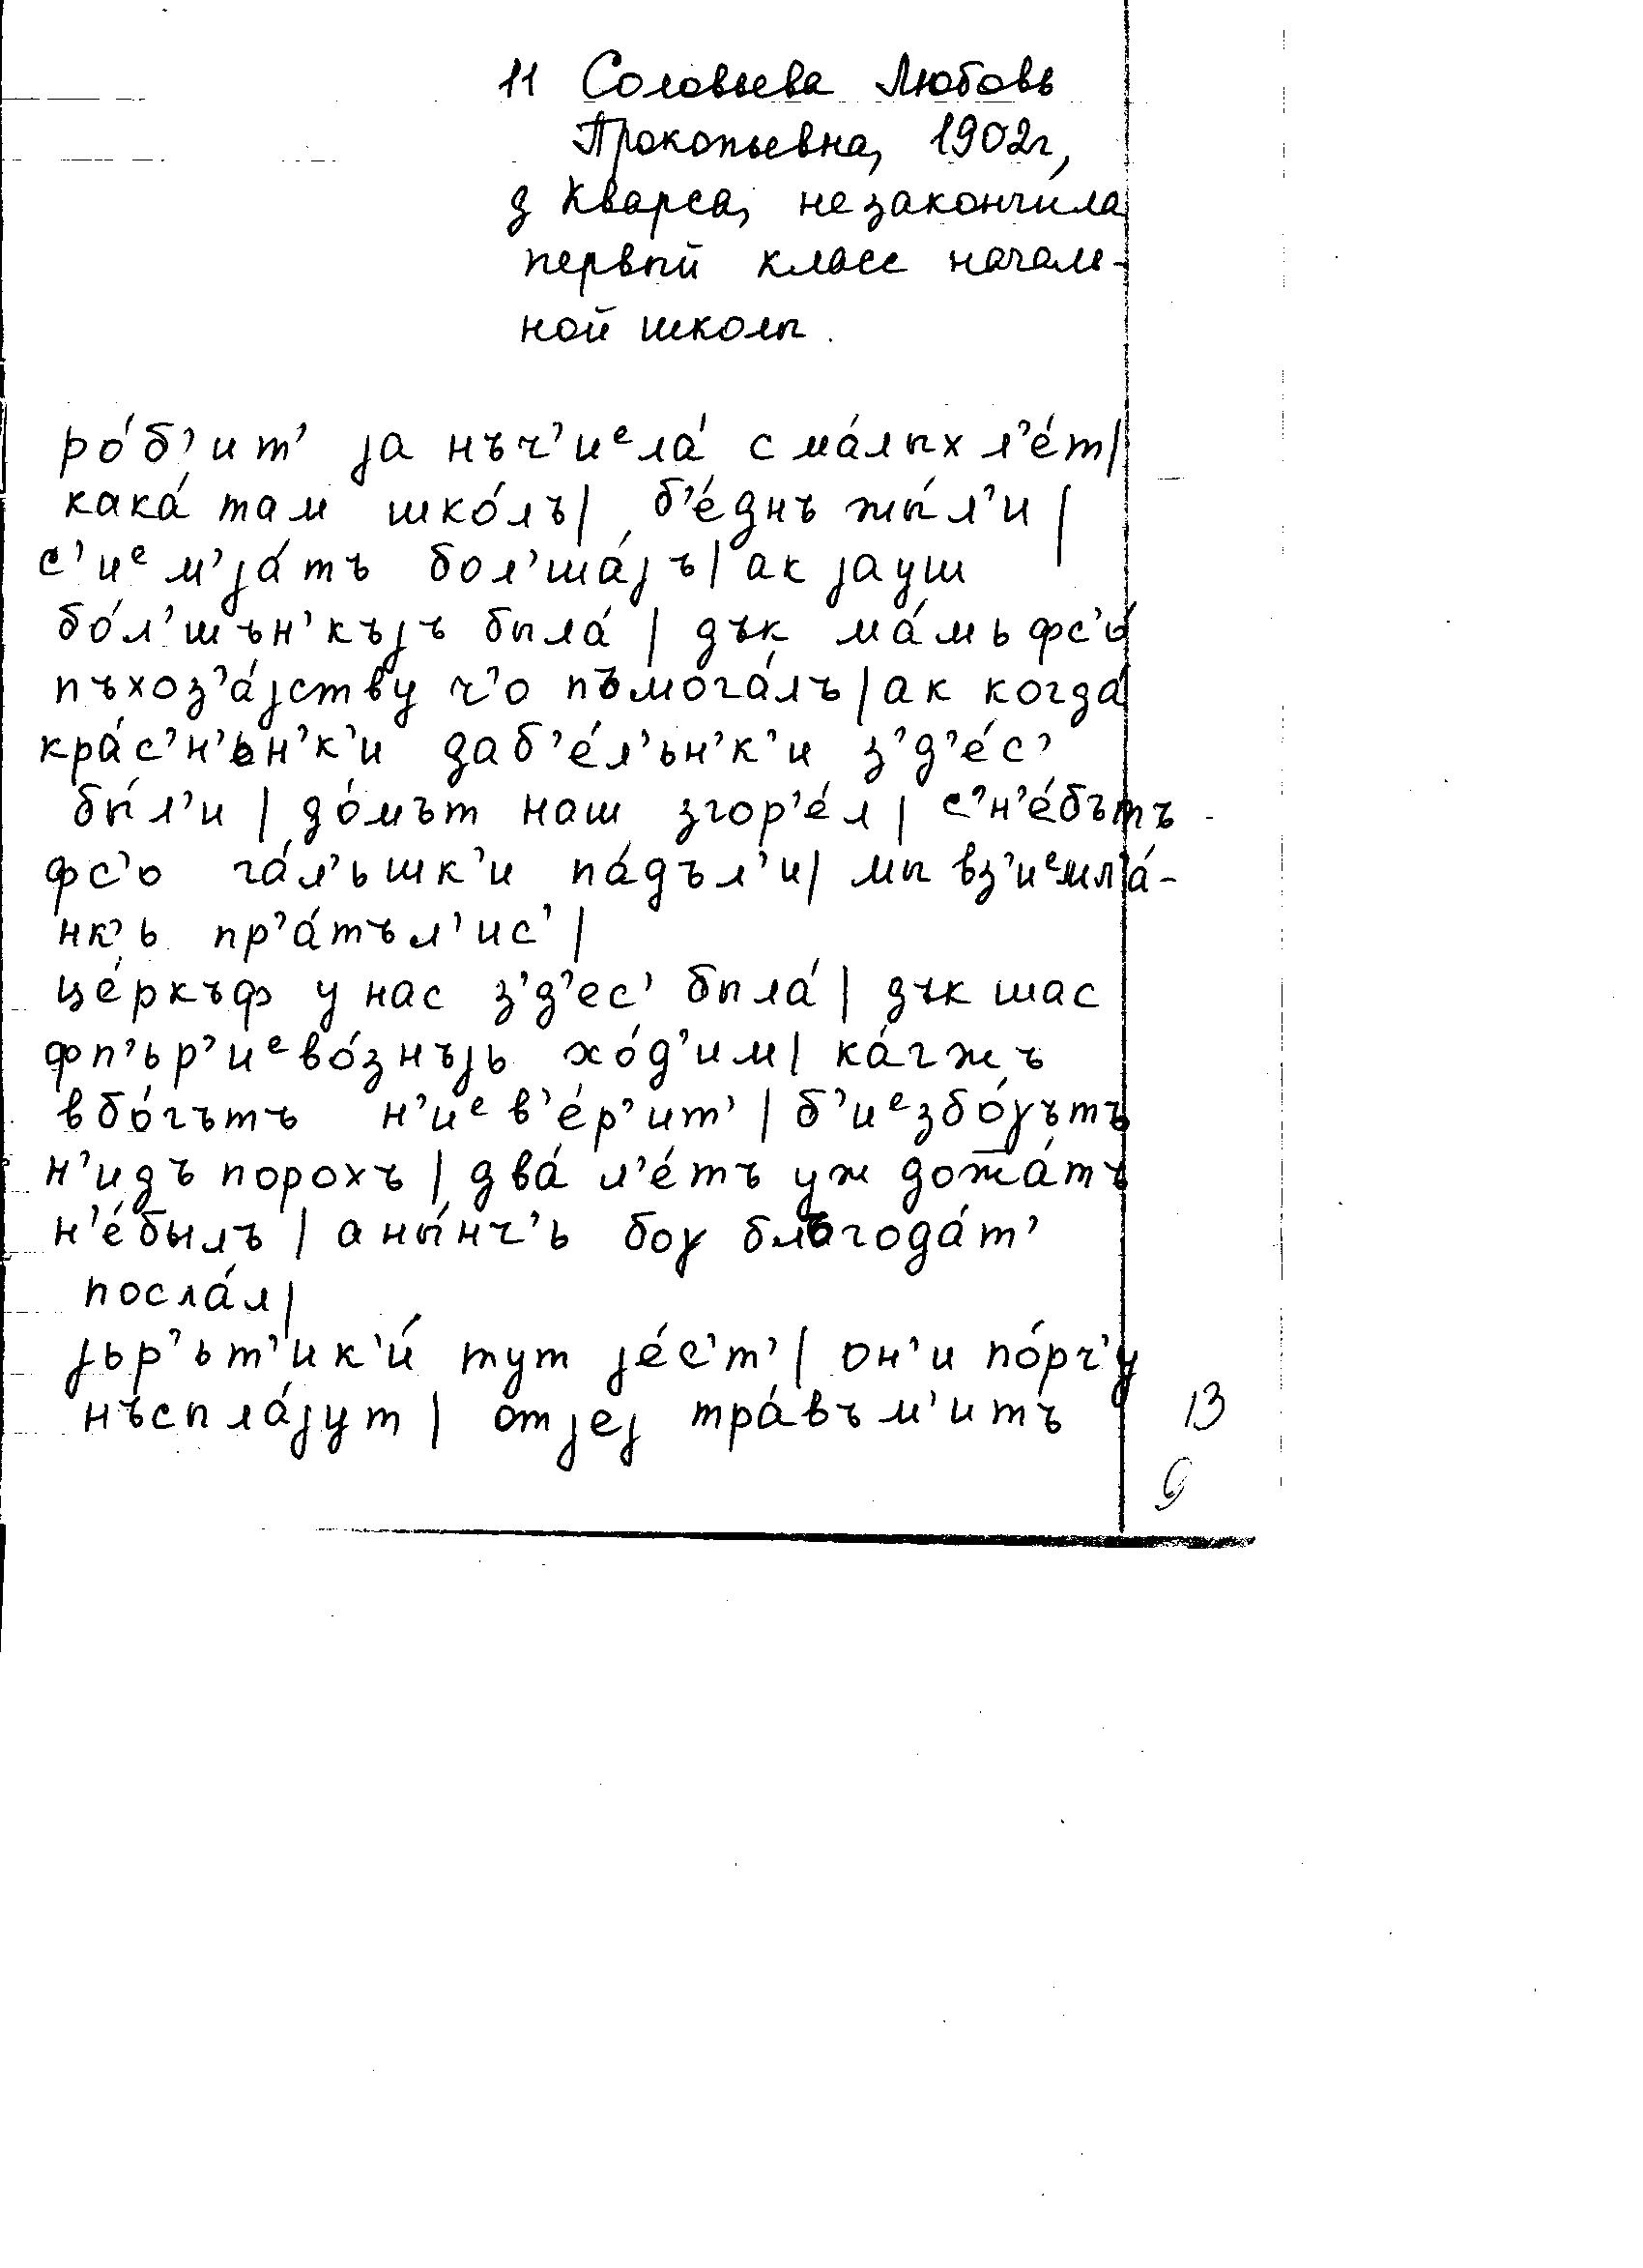 11 Соловьева Любовь
Прокопьевна, 1902г,
д Кварса, незакончила
первый класс началь-
ной школы.
ро́б’ит’ jа нъч’иᵉла́ с ма́лых л’е́т|
кака́ там шко́лъ| б’е́днъ жы́л’и |
с’иᵉм’jа́тъ бол’ша́jъ| ак jауш
бо́л’шън’къjъ была́ | дък ма́мь фс’о́
пъхоз’а́jству ч’о пъмога́лъ| ак когда́
кра́с’н’ьн’к’и даб’е́л’ьн’к’и з’д’е́с’
бы́л’и | до́мът наш згор’е́л | с’н’е́бътъ
фс’о га́л’ьшк’и па́дъл’и| мы вз’иᵉмл’а́-
нк’ь пр’а́тъл’ис’|
це́ркъф у нас з’д’ес’ была́ | дък шас
фп’ьр’иᵉво́знъjь хо́д’им| ка́гжъ
вбо́гътъ н’иᵉв’е́р’ит’ | б’иᵉзбо́γътъ
н’идъ порохъ | два́ л’е́тъ уж дожа́тъ
н’е́былъ | аны́нч’ь боγ блъгода́т’
посла́л|
jьр’ьт’ик’и́ тут jе́с’т’ | он’и по́рч’у
нъспла́jут | отjеj тра́въм’итъ
13
9